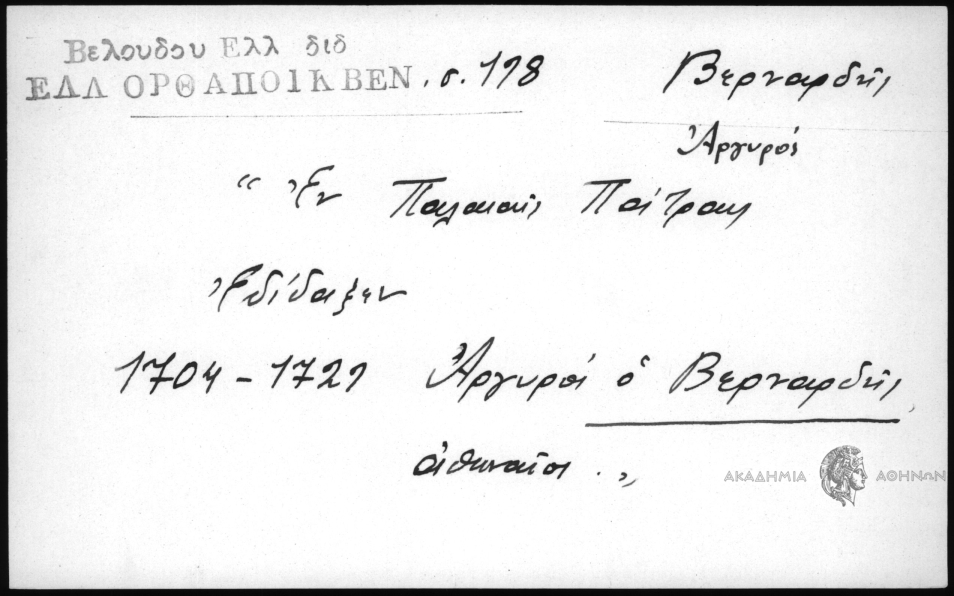 Βελουδου Ελλ διδ
ΕΛΛ ΟΡΘ ΑΠΟΙΚ ΒΕΝ. σ. 178
Βερναρδῆς
Ἀργυρός
“ Ἐν Παλαιαῖς Πάτραις
Ἐδίδαξεν
1704 - 1721 Ἀργυρός ὁ Βερναρδῆς,
ἀθηναῖος . „
ΑΚΑΔΗΜΙΑ ΑΘΗΝΩΝ